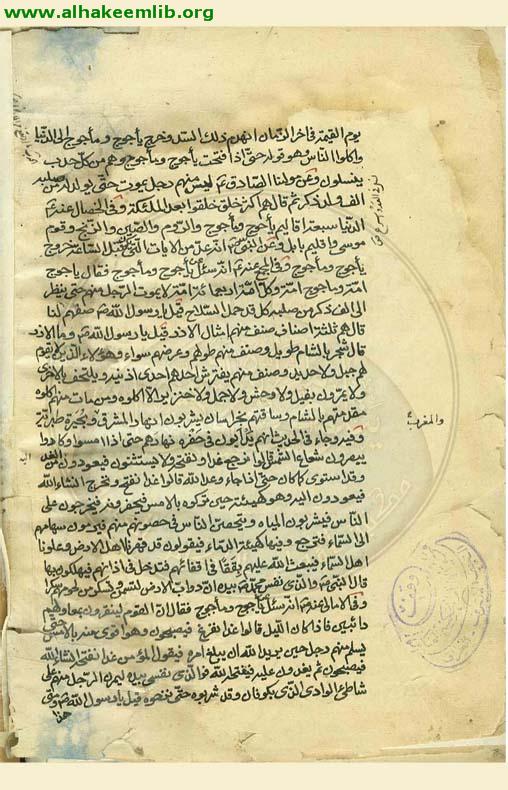 www.alhakeemlib.org
يوم القيمة في اخر الزمان انهدم ذلك السد وخرج يأجوج و مأجوج الى الدنيا
واكلوا الناس وهو قوله حتى اذا فتحت يأجوج ومأجوج وهم من كل حدب
ينسلون وعن مولنا الصادق ع ليس منهم رجل يموت حتى يولد له من صلبه
الف ولد ذكر ثم قال هم اكثر خلق خلقوا بعد الملئكة وفي الخصال عنه ع
الدنيا سبعة اقاليم يأجوج ومأجوج والروم والصين والزنج وقوم
موسى واقليم بابل وعن النبي ص انه عد من الايات التي قبل الساعة خروج
يأجوج ومأجوج وفي عنه ع انه سئل عن يأجوج ومأجوج فقال يأجوج
امة ومأجوج امة وكل امة اربعمائة امة لا يموت الرجل منهم حتى ينظر
الى الف ذكر من صلبه كل قد حمل السلاح قيل يا رسول الله ص صفهم لنا
قال هم ثلثة اصناف صنف منهم امثال الارز قيل يا رسول الله ص وما الارز
قال شجر بالشام طويل وصنف منهم طولهم وعرضهم سواء وهؤلاء الذين لا يقوم
لهم جبل ولا حديد وصنف منهم يفترش احدهم احدى اذنيه ويلتحف بالاخرى
ولا يمرون بفيل ولا وحش ولا جمل ولا خنزير الا اكلوه ومن مات منهم اكلوه
مقدمتهم بالشام وساقتهم بخراسان يشربون انهار المشرق وبحيرة طبرية
والمغرب
وفيه وجاء في الحديث انهم يدأبون في حفره نهارهم حتى اذا امسوا وكادوا
يبصرون شعاع الشمس قالوا نرجع غدا ونفتحه ولا يستثنون فيعودون من الغد
وقد استوى كما كان حتى اذا جاء وعد الله قالوا غدا نفتح ونخرج انشاء الله
فيعودون اليه وهو كهيئته حين تركوه بالامس فيخرقونه فيخرجون على
الناس فيشربون المياه ويتحصن الناس في حصونهم منهم فيرمون سهامهم
الى السماء فترجع وفيها كهيئة الدماء فيقولون قد قهرنا اهل الارض وعلونا
اهل السماء فيبعث الله عليهم نغفا في اقفائهم فتدخل في اذانهم فيهلكون بها
قال النبي ص والذي نفس محمد ص بيده ان دواب الارض لتسمن وتسكر من لحومهم سكرا
وفي الامالي عنه ع انه سئل عن يأجوج ومأجوج فقال ان القوم لينقرون بمعاولهم
دائبين فاذا كان الليل قالوا غدا نفرغ فيصبحون وهو اقوى منه بالامس حتى
يسلم منهم رجل حين يريد الله ان يبلغ امره فيقول المؤمن غدا نفتحه انشاء الله
فيصبحون ثم يغدون عليه فيفتحه الله فوالذي نفسي بيده ليمرن الرجل منهم على
شاطئ الوادي الذي بكوفان وقد شربوه حتى نزحوه قيل يا رسول الله ص ومتى
هذا